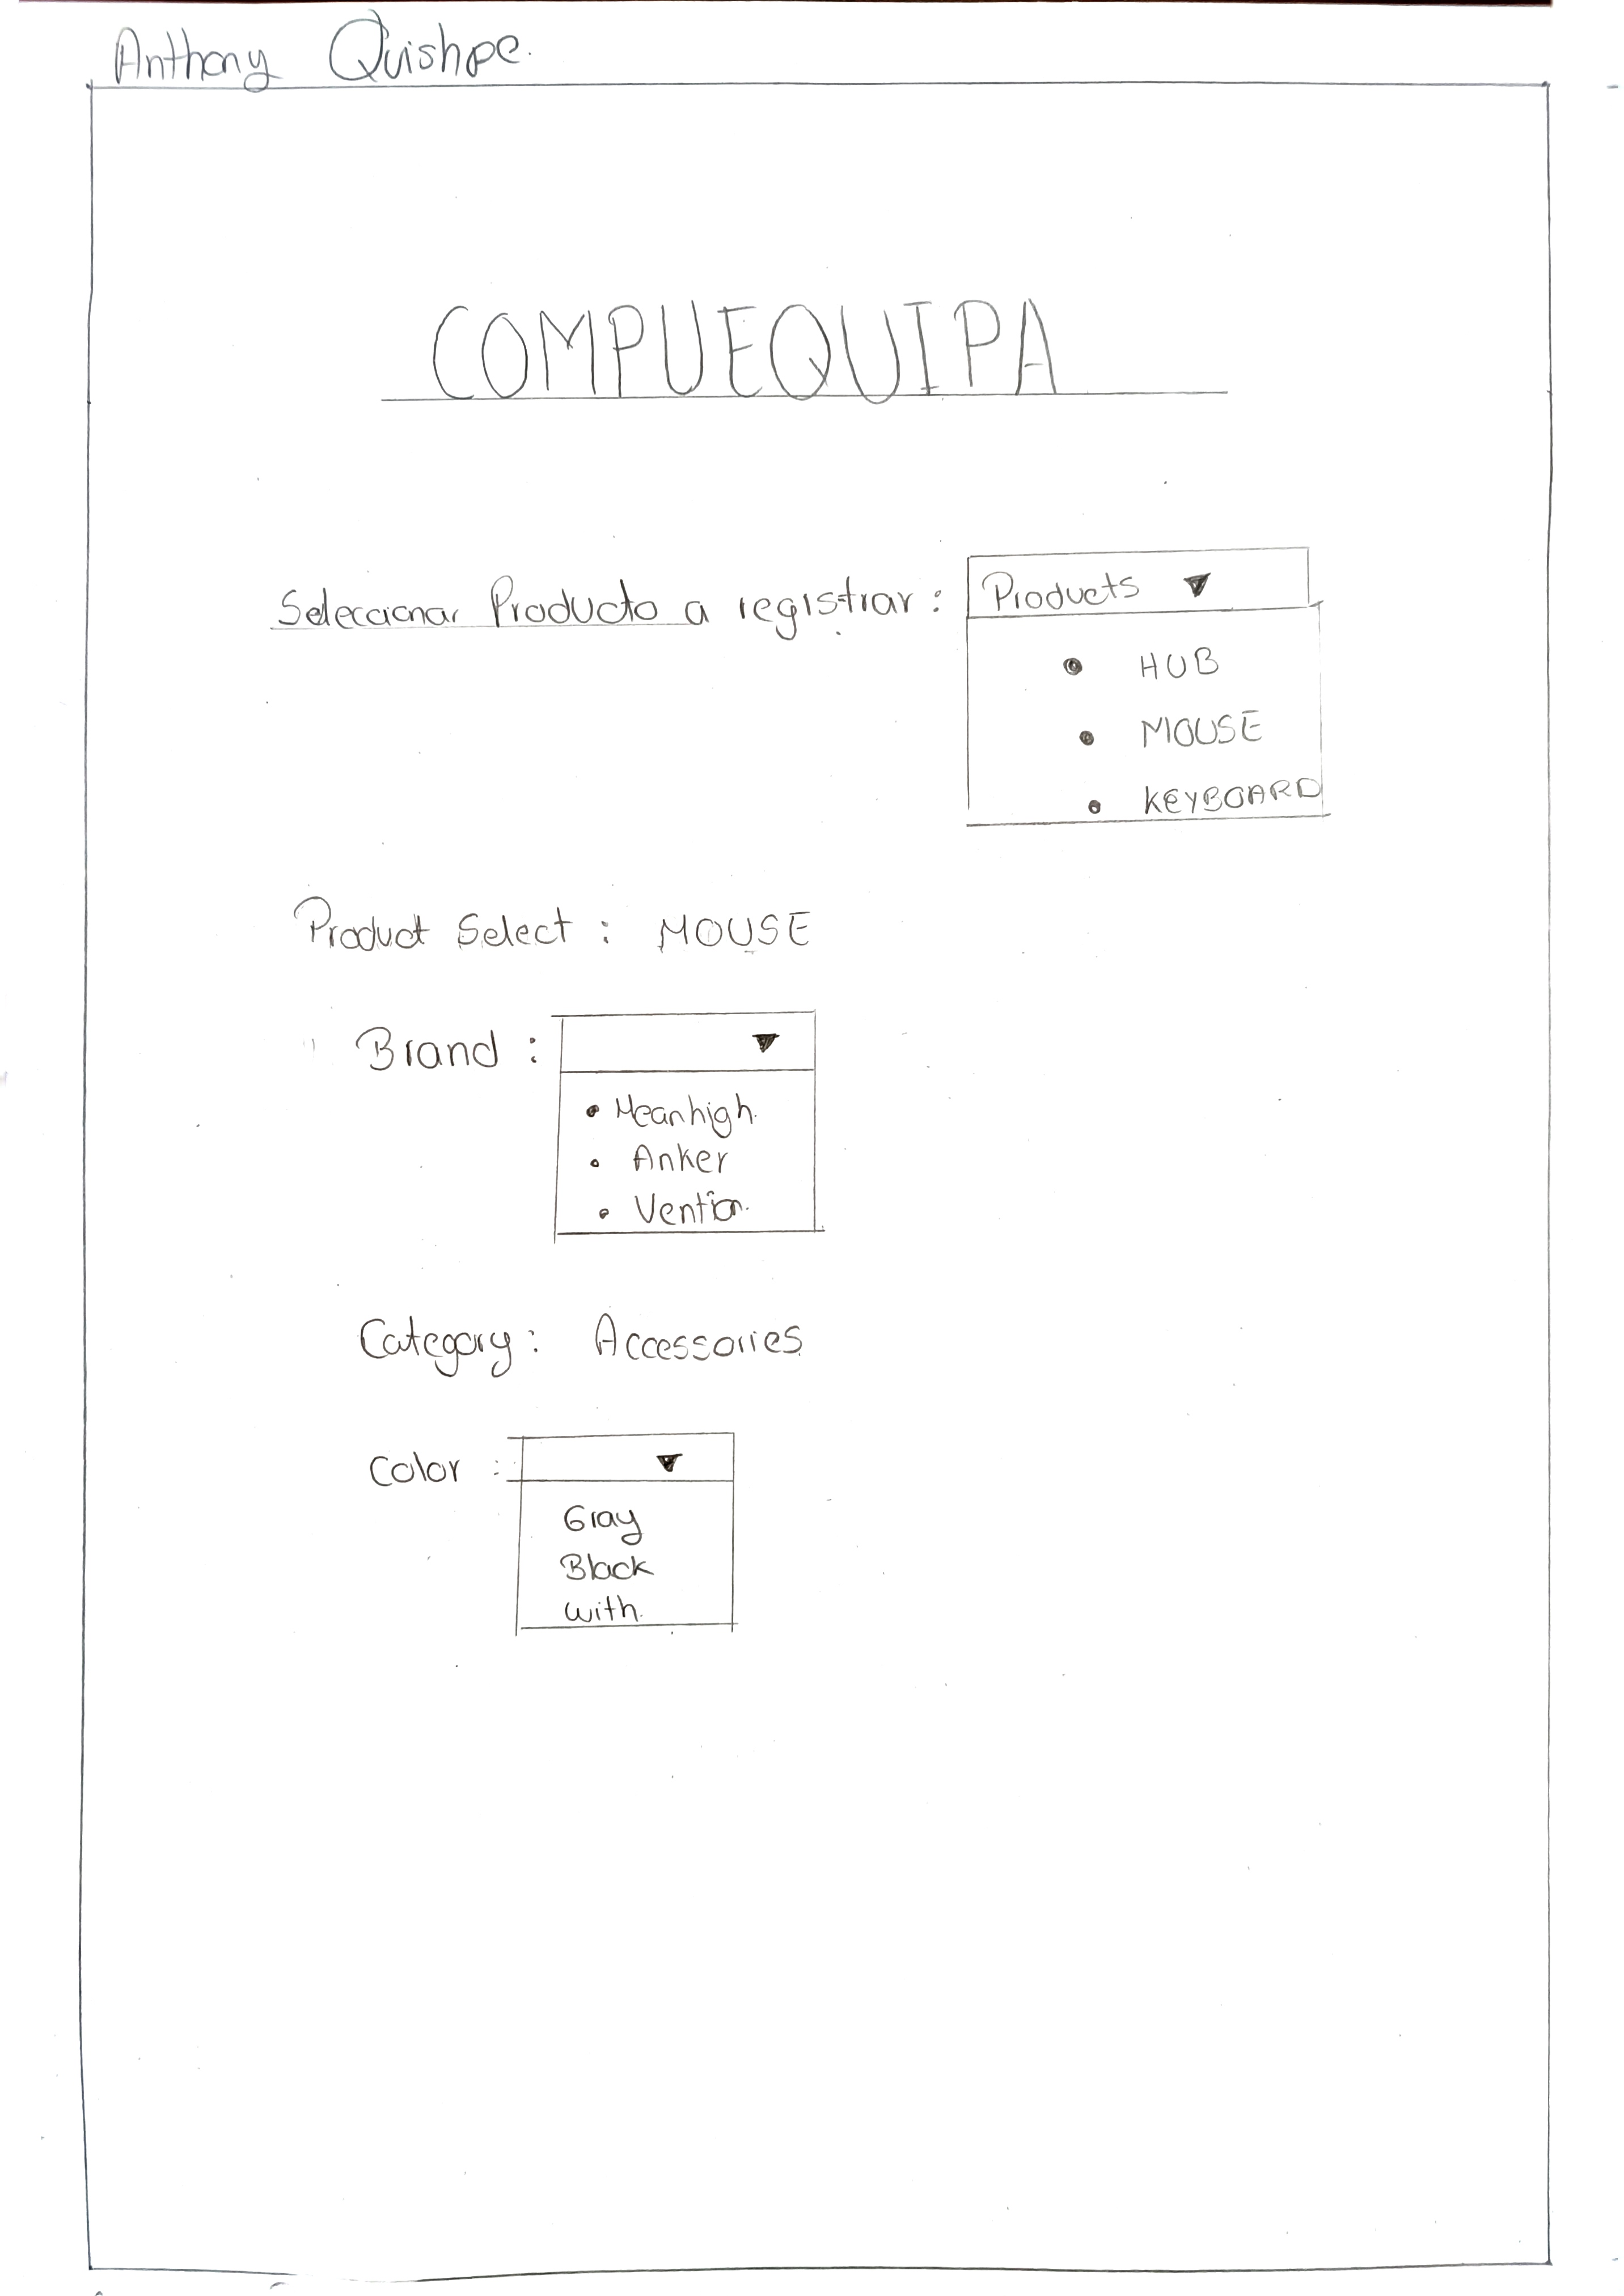 Anthony Quishpe.
COMPUEQUIPA
Seleccionar Producto a registrar :
Products ▼
• HUB
• MOUSE
• KEYBOARD
Product Select : MOUSE
Brand : ▼
• Meanhigh.
• Anker
• Vention.
Category : Accessories
Color : ▼
Gray
Black
with.